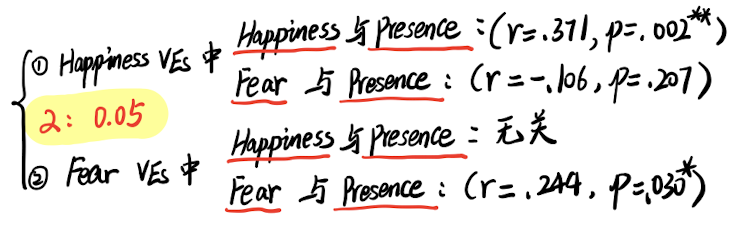 ① Happiness VEs 中 Happiness 与 Presence : (r=.371, p=.002**)
Fear 与 Presence : (r=-.106, p=.207)
2: 0.05
② Fear VEs 中 Happiness 与 Presence : 无关
Fear 与 Presence : (r=.244, p=.030*)